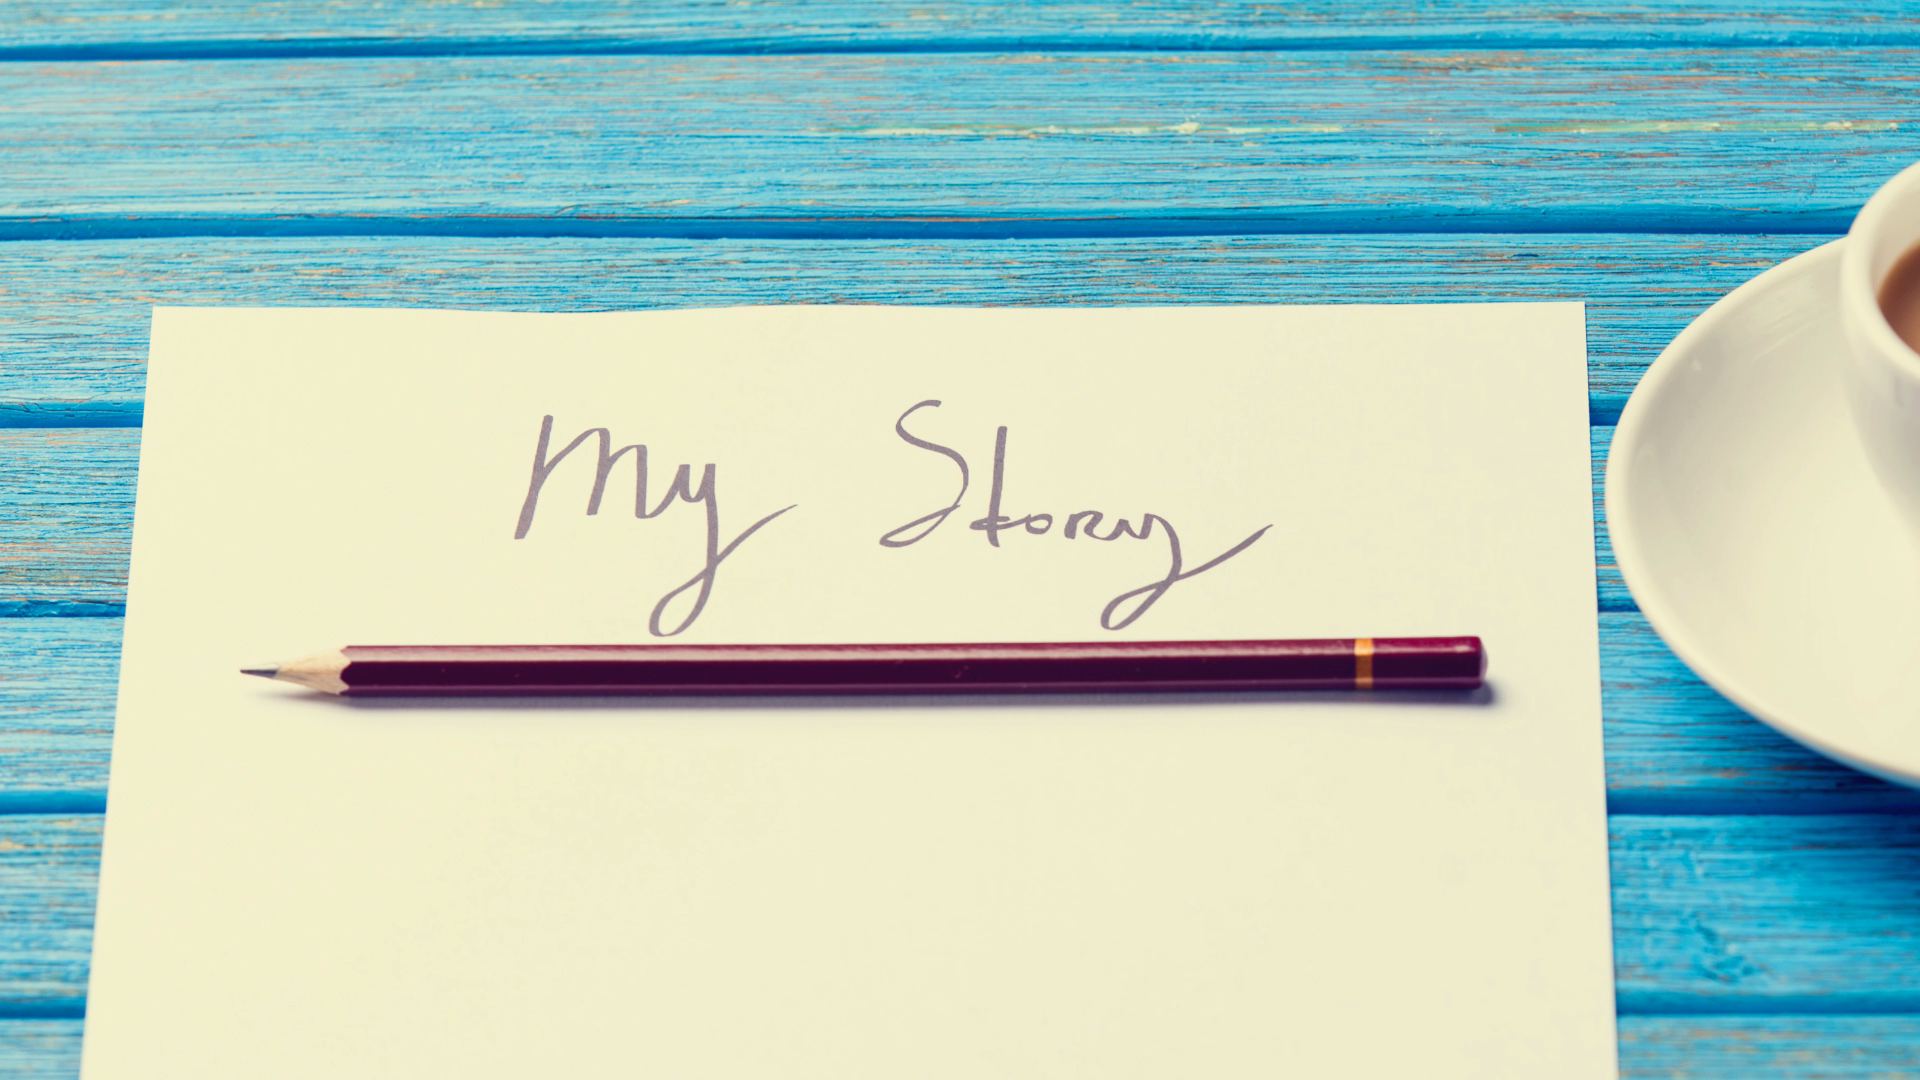 My Story